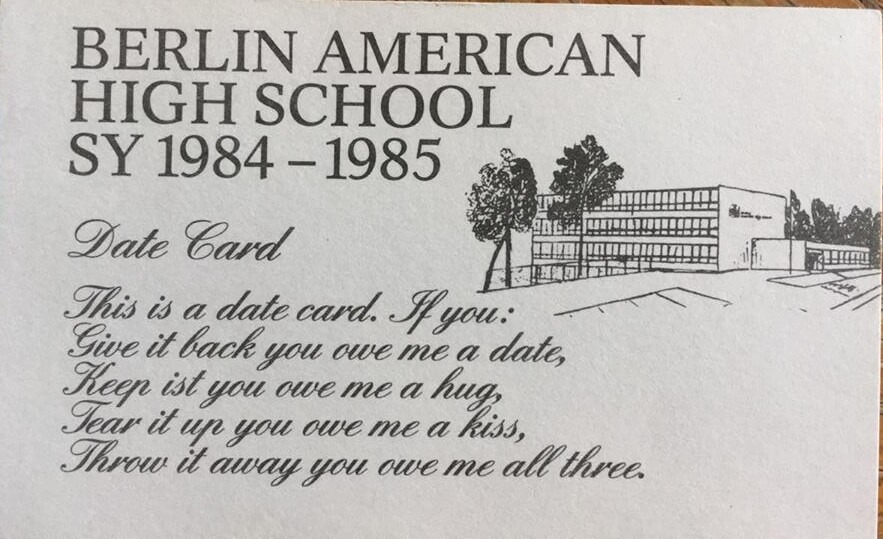 BERLIN AMERICAN
HIGH SCHOOL
SY 1984 – 1985
Date Card
This is a date card. If you:
Give it back you owe me a date,
Keep ist you owe me a hug,
Tear it up you owe me a kiss,
Throw it away you owe me all three.